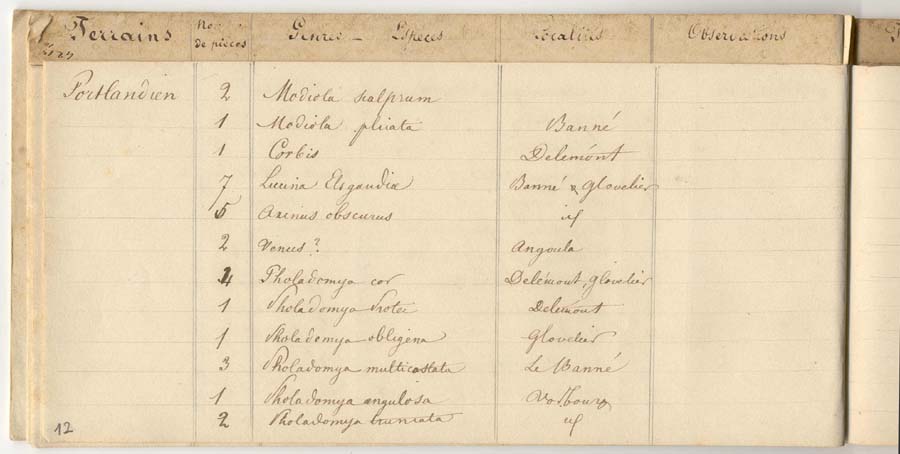 Terrains No. de pièces Genres — Espèces Localités Observations
Portlandien 2 Modiola scalprum
1 Modiola plicata Banné
1 Corbis Delémont
7 Lucina Elsgaudiæ Banné & Glovelier
5 Axinus obscurus id
2 Venus? Angoula
4 Pholadomya cor Delémont, Glovelier
1 Pholadomya Protei Delémont
1 Pholadomya obligena Glovelier
3 Pholadomya multicostata Le Banné
1 Pholadomya angulosa Vorbourg
2 Pholadomya truncata id
12